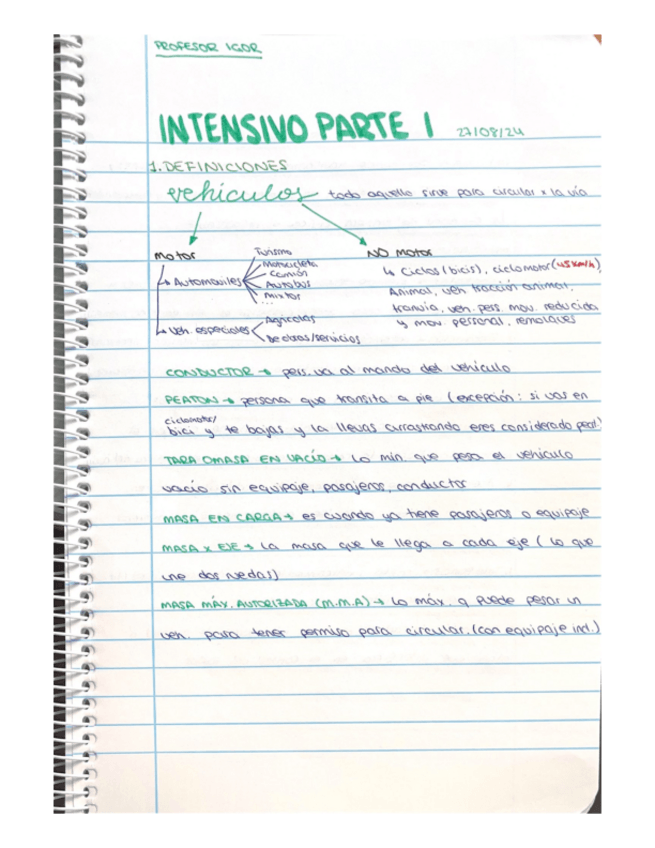 PROFESOR IGOR
INTENSIVO PARTE 1 27/08/24
1. DEFINICIONES
vehículos todo aquello sirve para circular x la vía
Motor
NO Motor
Automoviles
Turismo
Motocicleta
Camión
Autobus
Mixtos
...
Veh. especiales
Agrícolas
De obras/servicios
↳ Ciclos (bicis), ciclomotor (45km/h)
Animal, veh tracción animal,
tranvía, veh. pers. mov. reducida
y mov. personal, remolques
CONDUCTOR → pers. va al mando del vehículo
PEATON → persona que transita a pie (excepción: si vas en
ciclomotor/
bici y te bajas y la llevas arrastrando eres considerado peat.)
TARA O MASA EN VACÍO → Lo min. que pesa el vehículo
vacío sin equipaje, pasajeros, conductor
MASA EN CARGA → es cuando ya tiene pasajeros o equipaje
MASA x EJE → La masa que le llega a cada eje (lo que
une dos ruedas)
MASA MÁX. AUTORIZADA (M.M.A) → Lo máx. q puede pesar un
veh. para tener permiso para circular. (con equipaje incl.)